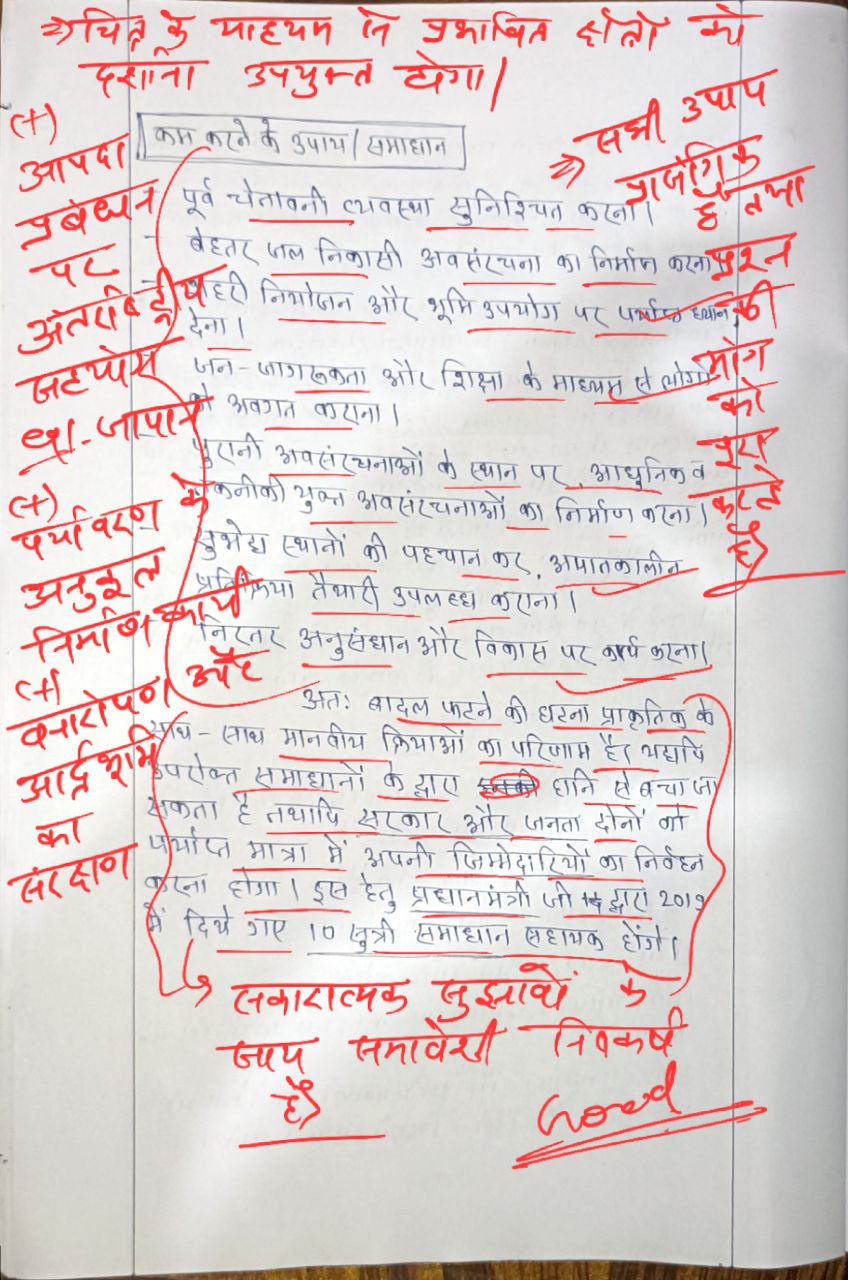 ⇒ चित्र के माध्यम से प्रभावित क्षेत्रों को
दर्शाना उपयुक्त होगा।
कम करने के उपाय / समाधान
- पूर्व चेतावनी व्यवस्था सुनिश्चित करना।
- बेहतर जल निकासी अवसंरचना का निर्माण करना।
- शहरी नियोजन और भूमि उपयोग पर पर्याप्त ध्यान
देना।
जन-जागरूकता और शिक्षा के माध्यम से लोगों
को अवगत कराना।
पुरानी अवसंरचनाओं के स्थान पर, आधुनिक व
तकनीकी युक्त अवसंरचनाओं का निर्माण करना।
सुभेद्य स्थानों की पहचान कर, अपातकालीन
प्रतिक्रिया तैयारी उपलब्ध कराना।
निरंतर अनुसंधान और विकास पर कार्य करना।
अतः बादल फटने की घटना प्राकृतिक के
साथ-साथ मानवीय क्रियाओं का परिणाम है। यद्यपि
उपरोक्त समाधानों के द्वारा हानि से बचा जा
सकता है तथापि सरकार और जनता दोनों को
पर्याप्त मात्रा में अपनी जिम्मेदारियों का निर्वहन
करना होगा। इस हेतु प्रधानमंत्री जी द्वारा 2019
में दिये गए 10 सूत्री समाधान सहायक होंगे।
(+)
आपदा
प्रबंधन
पर
अंतर्राष्ट्रीय
सहयोग
था-जापान
(+)
पर्यावरण के
अनुकूल
निर्माण कार्य
(+)
वनारोपण और
आर्द्रभूमि
का
संरक्षण
⇒ सभी उपाय
प्रासंगिक
हैं तथा
प्रश्न
की
मांग
को
पूरा
करते
हैं
↳ सकारात्मक सुझावों के
साथ समावेशी निष्कर्ष
है
Good